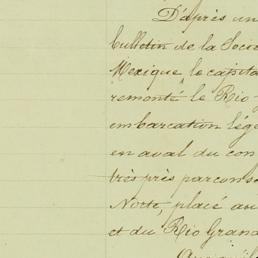 D'après un
bulletin de la Socié
Mexique, le capita
remonté le Rio-
embarcation légè
en aval du con
très près par
Norte, placé au
et du Rio Grand